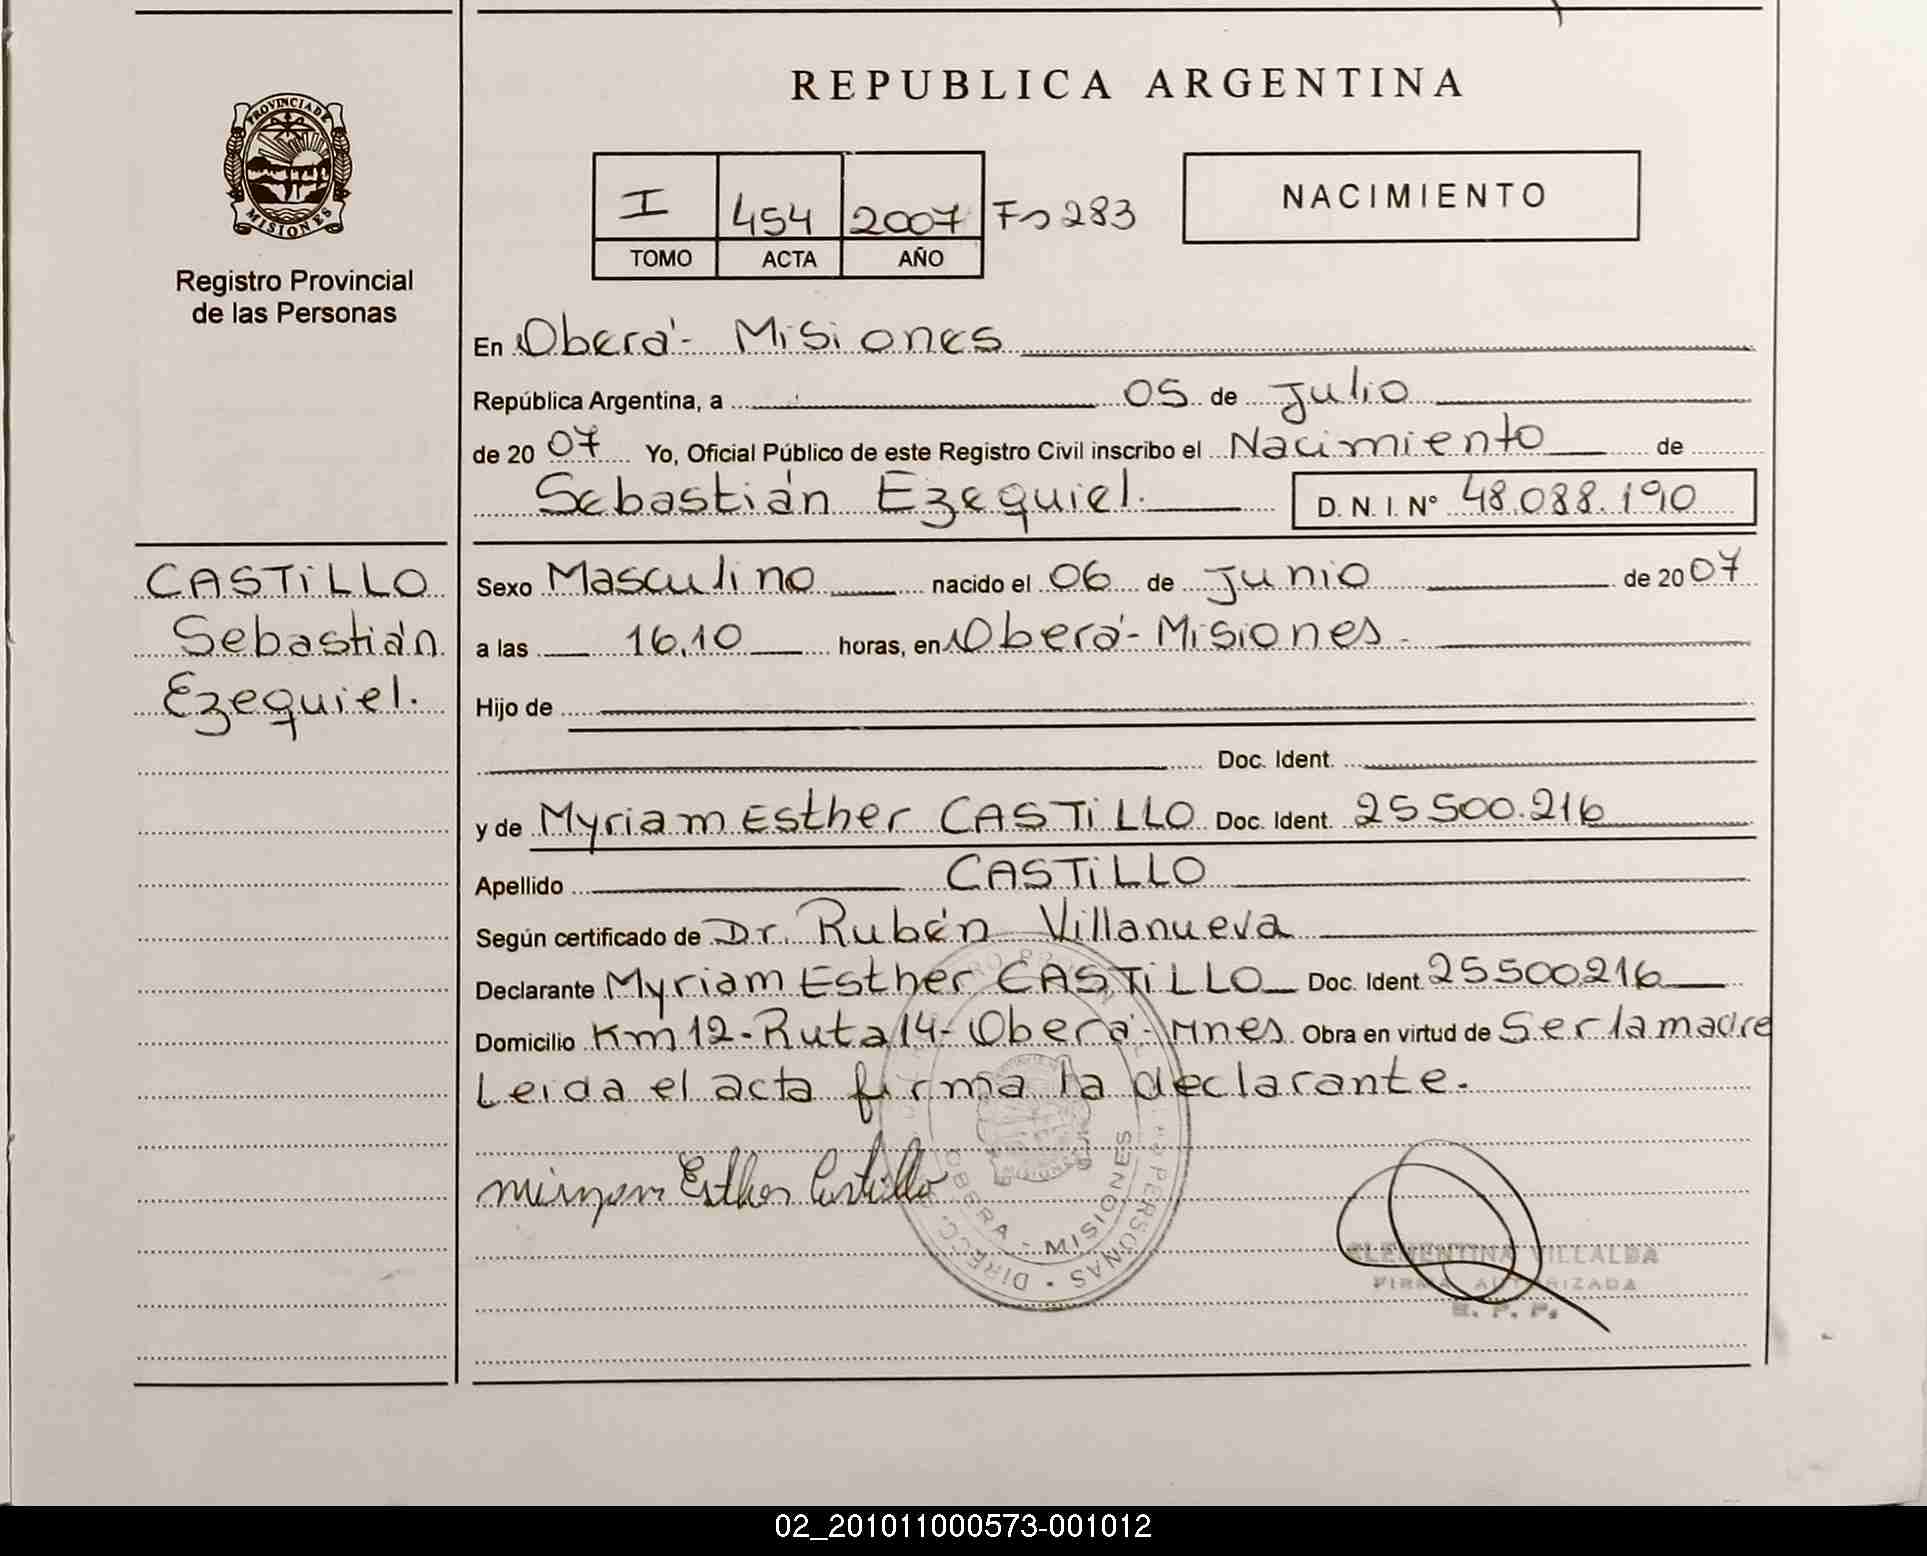 REPUBLICA ARGENTINA
PROVINCIA DE
MISIONES
Registro Provincial
de las Personas
I 454 2007 Fs 283
TOMO ACTA AÑO
NACIMIENTO
En Oberá - Misiones
República Argentina, a 05 de Julio
de 2007 Yo, Oficial Público de este Registro Civil inscribo el Nacimiento de
Sebastián Ezequiel. D.N.I. Nº 48.088.190
CASTiLLO
Sebastián
Ezequiel.
Sexo Masculino nacido el 06 de Junio de 2007
a las 16,10 horas, en Oberá - Misiones -
Hijo de
Doc. Ident.
y de Myriam Esther CASTiLLO Doc. Ident. 25 500.216
Apellido CASTiLLO
Según certificado de Dr. Rubén Villanueva
Declarante Myriam Esther CASTiLLO Doc. Ident. 25500216
Domicilio Km 12 - Ruta 14 - Oberá - Mnes. Obra en virtud de Ser la madre
Leida el acta firma la declarante.
Esther Castillo
OBERA - MISIONES
PERSONAS
CLEMENTINA VILLALBA
FIRMA AUTORIZADA
R. P. P.
02_201011000573-001012